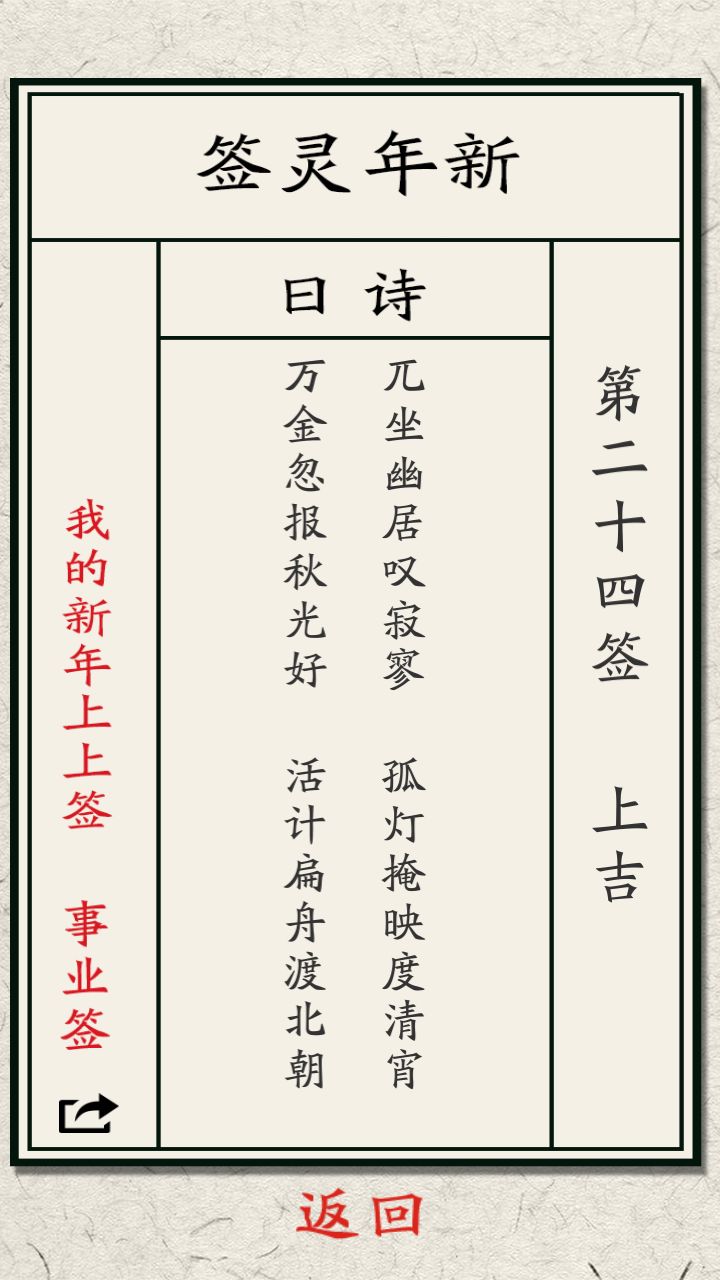 新年灵签
诗曰
第二十四签 上吉
兀坐幽居叹寂寥 孤灯掩映度清宵
万金忽报秋光好 活计扁舟渡北朝
我的新年上上签 事业签
返回